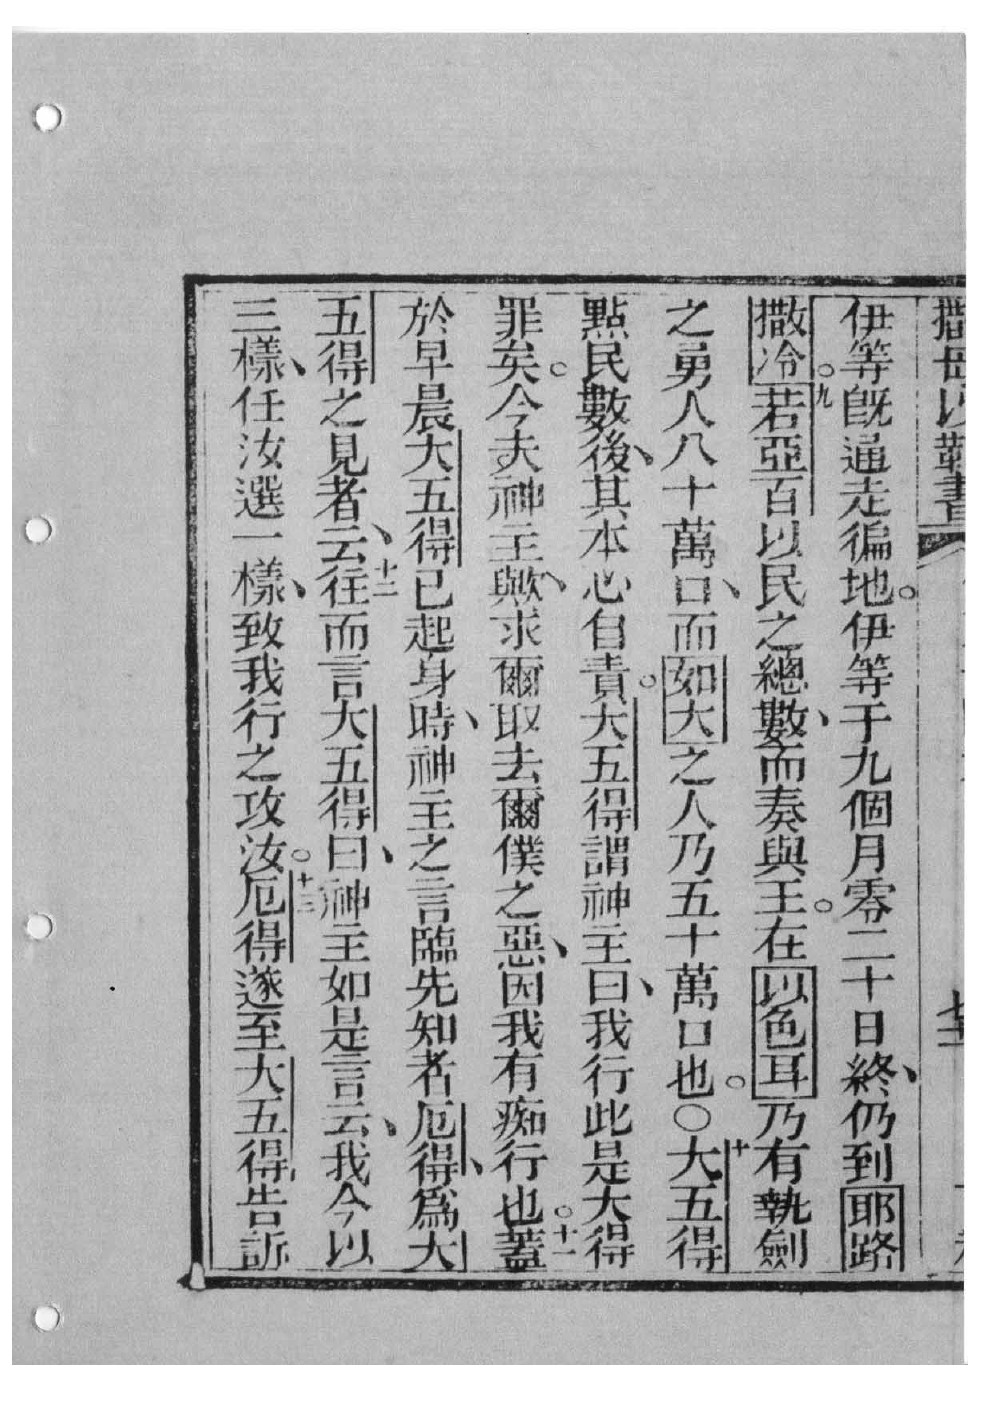 撒母以勒書
伊等旣通走徧地。伊等于九個月零二十日終、仍到耶路
撒冷。九若亞百以民之總數、而奏與王。在以色耳乃有執劍
之勇人八十萬口、而如大之人乃五十萬口也。○十大五得
點民數後、其本心自責。大五得謂神主曰、我行此是大得
罪矣。今夫神主歟、求爾取去爾僕之惡、因我有痴行也。十一蓋
於早晨大五得已起身時、神主之言臨先知者厄得、爲大
五得之見者、云、十二往而言大五得曰、神主如是言云、我今以
三樣、任汝選一樣、致我行之攻汝。十三厄得遂至大五得告訴